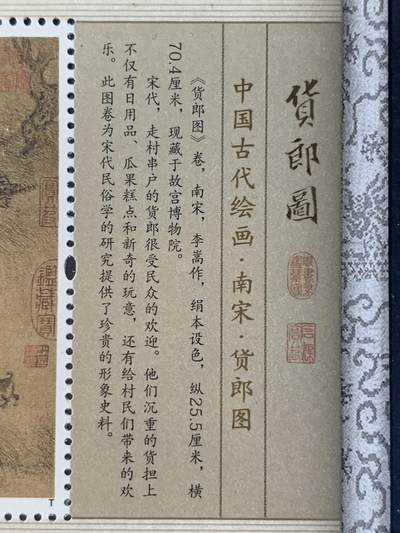 貨郎圖
中国古代绘画·南宋·货郎图
《货郎图》卷，南宋，李嵩作，绢本设色，纵25.5厘米，横
70.4厘米，现藏于故宫博物院。
宋代，走村串户的货郎很受民众的欢迎。他们沉重的货担上
不仅有日用品、瓜果糕点和新奇的玩意，还有给村民们带来的欢
乐。此图卷为宋代民俗学的研究提供了珍贵的形象史料。
T